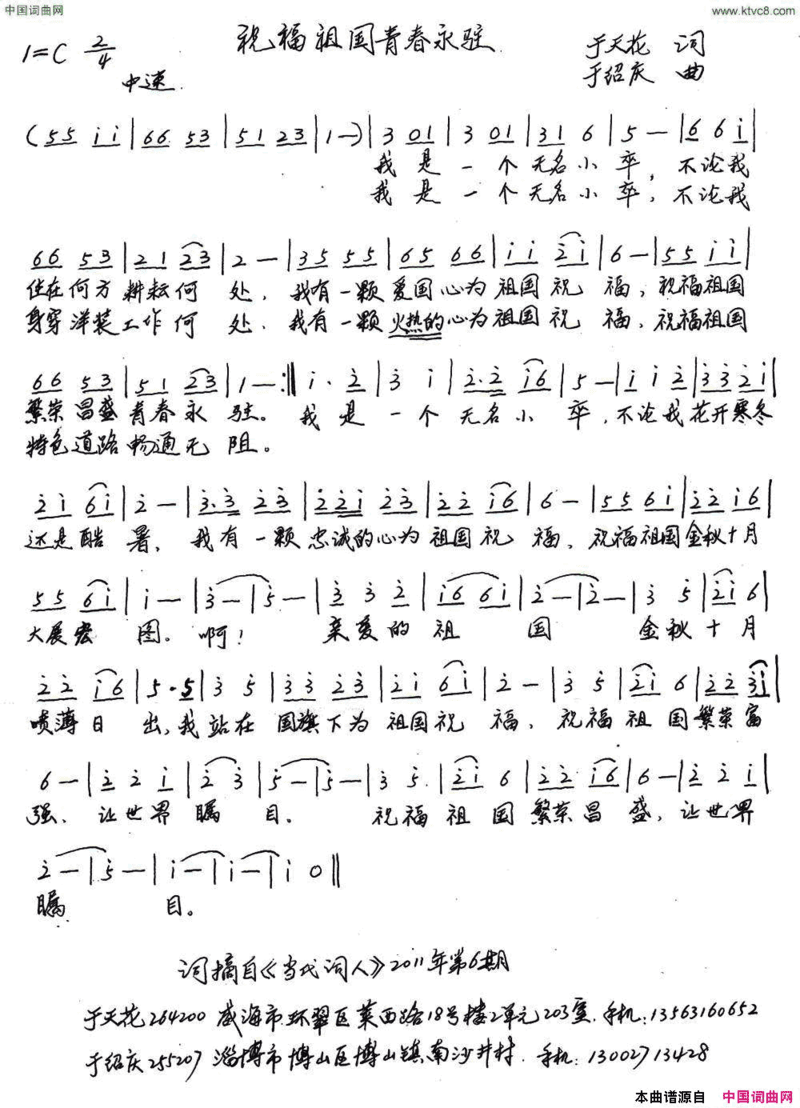 中国词曲网
www.ktvc8.com
祝福祖国青春永驻
1=C 2/4
中速
于天花 词
于绍庆 曲
(55 ii|66 53|51 23|1—)|3 01|3 01|31 6|5 —|6 6 i|
我是一个无名小卒,不论我
我是一个无名小卒,不论我
66 53|21 23|2 —|35 55|65 66|i i 2̇ i|6 —|55 i i|
住在何方耕耘何处,我有一颗爱国心为祖国祝福,祝福祖国
身穿洋装工作何处,我有一颗火热的心为祖国祝福,祝福祖国
66 53|51 23|1 —:‖i· 2̇|3̇ i|2̇·2̇ i6|5 —|i i 2̇|3̇3̇2̇i|
繁荣昌盛青春永驻。我是一个无名小卒,不论我花开寒冬
特色道路畅通无阻。
2̇i 6i|2̇ —|3̇·3̇ 2̇3̇|2̇2̇i 2̇3̇|2̇2̇ i6|6 —|55 6i|2̇2̇ i6|
还是酷暑,我有一颗忠诚的心为祖国祝福,祝福祖国金秋十月
55 6i|i —|3̇ —|5̇ —|3̇ 3̇ 2̇|i6 6i|2̇ —|2̇ —|3̇ 5̇|2̇i 6|
大展宏图。啊!亲爱的祖国金秋十月
2̇2̇ i6|5·5|3̇ 5̇|3̇3̇ 2̇3̇|2̇i 6i|2̇ —|3̇ 5̇|2̇i 6|2̇2̇ 3̇i|
喷薄日出,我站在国旗下为祖国祝福,祝福祖国繁荣富
6 —|2̇ 2̇ i|2̇ 3̇|5̇ —|5̇ —|3̇ 5̇|2̇i 6|2̇2̇ i6|6 —|2̇ 2̇ i|
强,让世界瞩目。祝福祖国繁荣昌盛,让世界
2̇ —|5̇ —|i —|i —|i 0‖
瞩目。
词摘自《当代词人》2011年第6期
于天花264200 威海市环翠区莱西路18号楼2单元203室.手机:13563160652
于绍庆255207 淄博市博山区博山镇南沙井村.手机:13002713428
本曲谱源自 中国词曲网